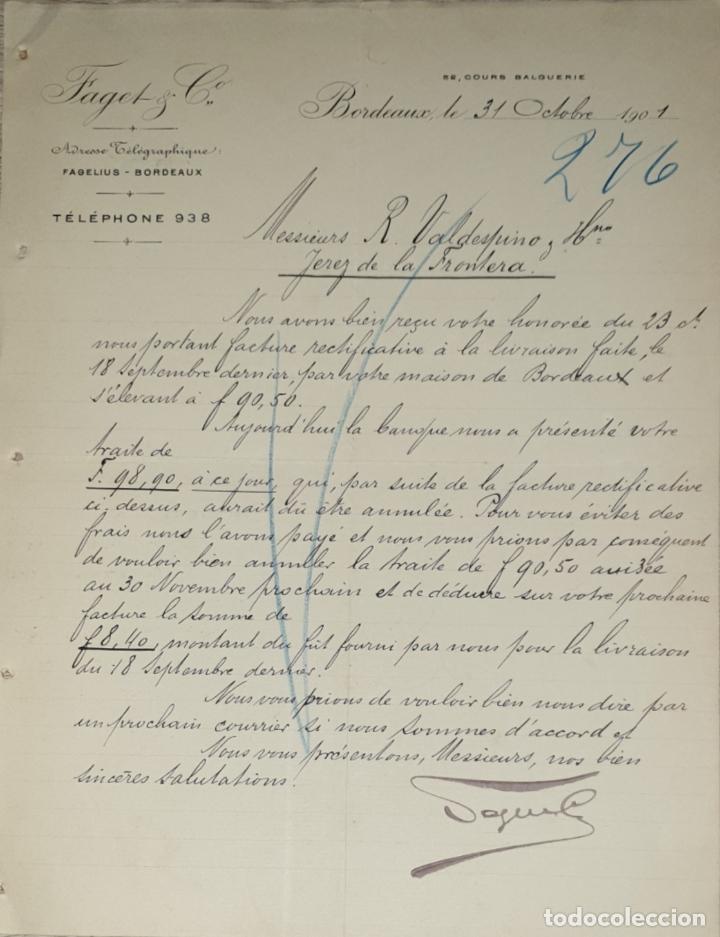 Faget & Co.
52, COURS BALGUERIE
Bordeaux, le 31 Octobre 1901
Adresse Télégraphique:
FAGELIUS - BORDEAUX
TÉLÉPHONE 938
276
Messieurs R. Valdespino y Hno
Jerez de la Frontera.
Nous avons bien reçu votre honorée du 23 ct.
nous portant facture rectificative à la livraison faite, le
18 Septembre dernier, par votre maison de Bordeaux et
s'élevant à f 90,50.
Aujourd'hui la banque nous a présenté votre
traite de
F. 98,90, à ce jour, qui, par suite de la facture rectificative
ci-dessus, aurait dû être annulée. Pour vous éviter des
frais nous l'avons payé et nous vous prions par conséquent
de vouloir bien annuller la traite de f 90,50 avisée
au 30 Novembre prochain et de déduire sur votre prochaine
facture la somme de
f 8,40, montant du fût fourni par nous pour la livraison
du 18 Septembre dernier.
Nous vous prions de vouloir bien nous dire par
un prochain courrier si nous sommes d'accord et
Nous vous présentons, Messieurs, nos bien
sincères salutations.
todocoleccion